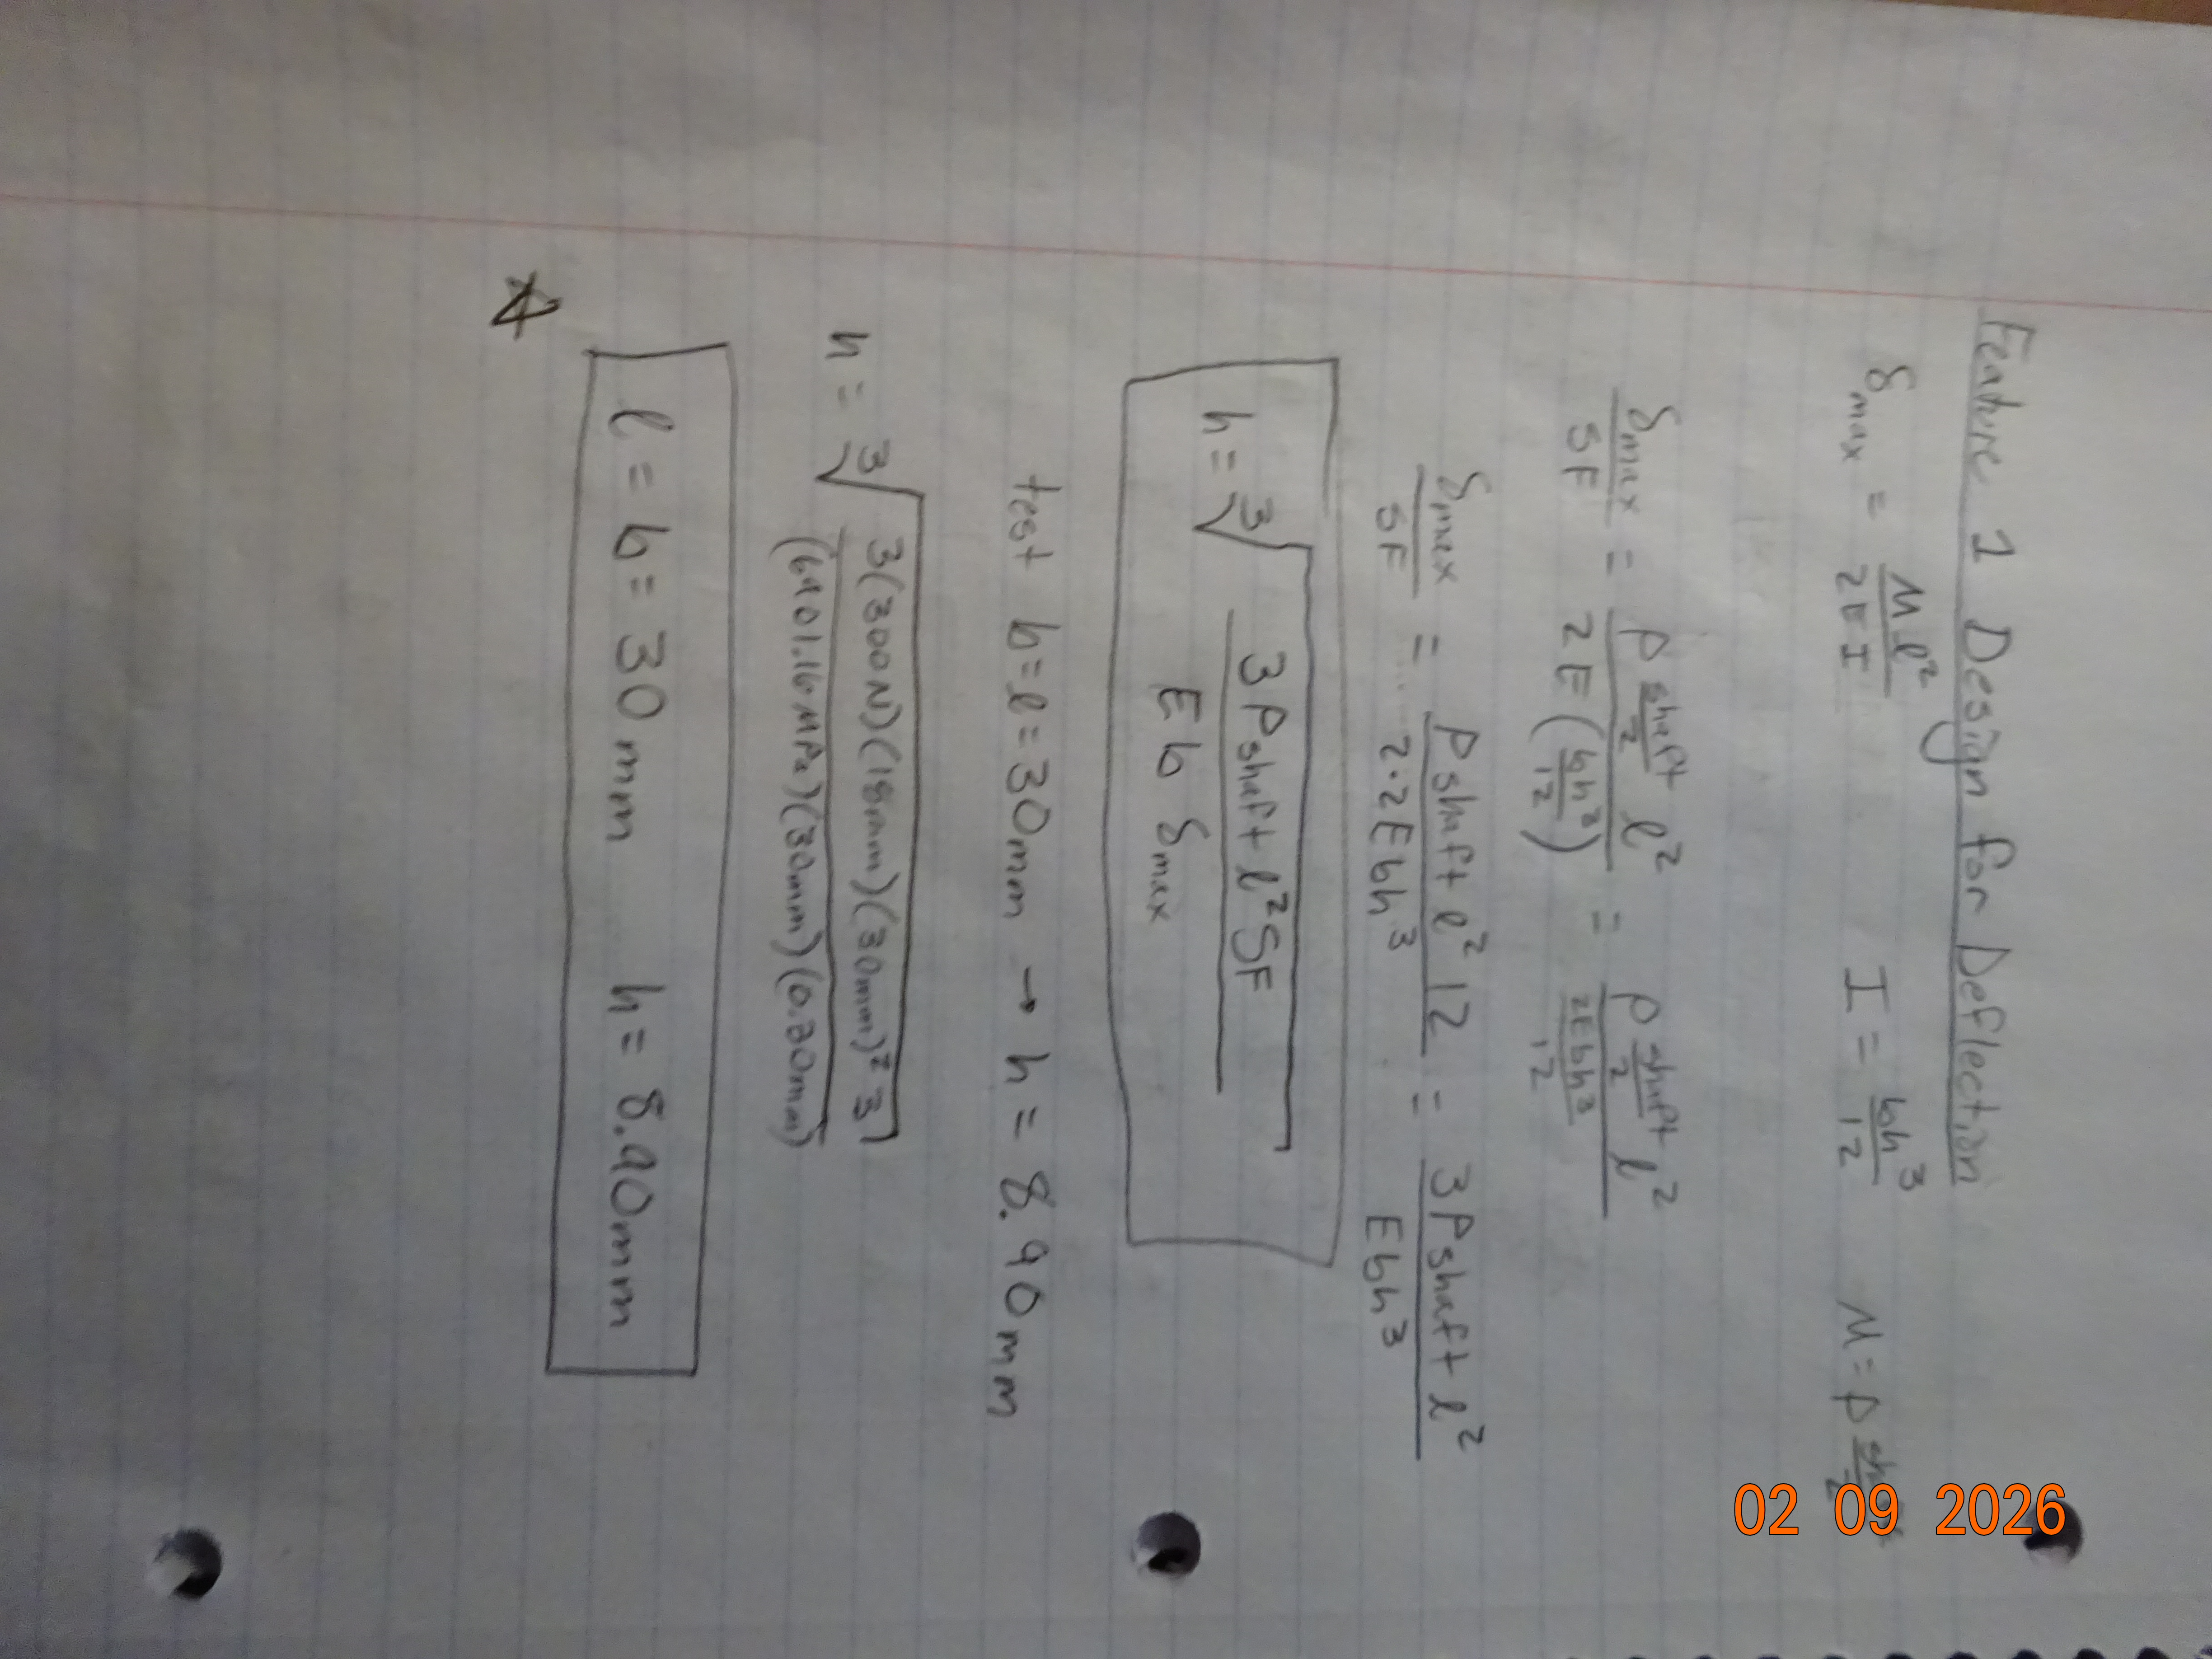 Feature 1 Design for Deflection
δmax = Ml²/2EI I = bh³/12 M = P shaft/2
δmax/SF = P shaft/2 l² / 2E(bh³/12) = P shaft/2 l² / 2Ebh³/12
δmax/SF = Pshaft l² 12 / 2·2Ebh³ = 3Pshaft l² / Ebh³
h = ³√(3Pshaft l² SF / Eb δmax)
test b=l=30mm → h = 8.90mm
h = ³√(3(300N)(18mm)(30mm)² 3 / (6901.16MPa)(30mm)(0.30mm))
l = b = 30mm h = 8.90mm
02 09 2026